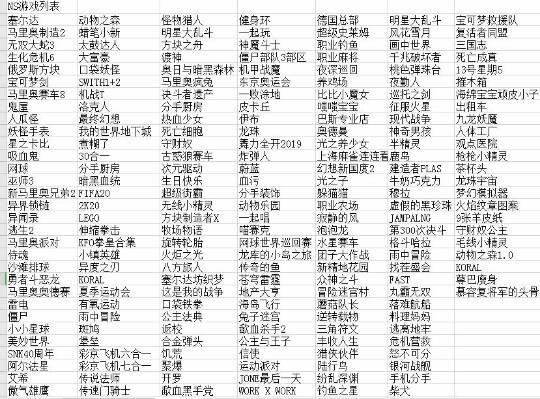 NS游戏列表
塞尔达 动物之森 怪物猎人 健身环 德国总部 明星大乱斗 宝可梦救援队
马里奥制造2 蜡笔小新 明星大乱斗 一起玩 超级史莱姆 风花雪月 复活者同盟
无双大蛇3 太鼓达人 方块之舟 神魔斗士 职业钓鱼 画中世界 三国志
生化危机6 大富豪 渡神 僵尸部队3部区 职业麻将 千兆破坏者 死亡成真
俄罗斯方块 口袋妖怪 奥日与暗黑森林 机甲战魔 夜深巡回 桃色弹珠台 13号星期5
宝可梦剑 SWITH1+2 马里奥疯兔 东京奥运会 养鸡场 夜勤人 推木箱
马里奥赛车8 机战T 决斗者遗产 一败涂地 比比小魔女 巡托之剑 海绵宝宝顽皮小子
鬼屋 洛克人 分手厨房 皮卡丘 嘻嗤宝宝 征服火星 出租车
人瓜怪 最终幻想 热血少女 伊布 巴斯专业店 现代战争 九龙妖魔
妖怪手表 我的世界地下城 死亡细胞 龙珠 奥德曼 神奇男孩 人体工厂
星之卡比 煮糊了 守财奴 舞力全开2019 光之养少女 半精灵 观点医院
吸血鬼 30合一 古惑狼赛车 炸弹人 上海麻雀连连看 鹿岛 枪枪小精灵
网球 分手厨房 次元驱动 蔚蓝 幻想新国度2 建造者PLAS 茶杯头
巫师3 暗黑血统 生日快乐 血污 光之子 牛奶巧克力 龙珠宇宙
新马里奥兄弟2 FIFA20 超级街霸 分手装饰 躲猫猫 穆拉 梦幻模拟器
异界锁链 2K20 无线小精灵 动物乐园 职业农场 虚假的黑珍珠 火焰纹章图案
异闻录 LEGO 方块制造者X 一起唱 寂静的风 JAMPALNG 9张羊皮纸
逃生2 伸缩拳击 牧场物语 喵赛克 泡泡龙 第300次决斗 守财奴公主
马里奥派对 KFO拳皇合集 旋转轮胎 网球世界巡回赛 水星赛车 格斗哈拉 毛线小精灵
侍魂 小镇英雄 火炬之光 龙库的小岛之旅 团子大作战 雨中冒险 动物之森1.0
沙滩排球 异度之刃 八方旅人 传奇的鱼 新精地花园 找茬盛会 KORAL
勇者斗恶龙 KORAL 塞尔达纺织梦 苍弩雷霆 众神之斗 FAST 尊巴瘦身
马里奥奥德赛 夏季运动会 这是我的战争 地产大亨 冒险迷宫村 九霸无双 慕容复将军的头骨
雷电 有氧运动 口袋铁拳 海岛飞行 蘑菇队长 落难航船
僵尸 雨中冒险 公主法典 兔子迷宫 逆转裁物 料理妈妈
小小星球 斑鸠 返校 歃血杀手2 三角符文 逃离地牢
美妙世界 堡垒 合金弹头 公主与王子 丰收人生 危机营救
SNK40周年 彩京飞机六合一 饥荒 信使 猎侠伙伴 怒不可分
阿尔达星 彩京飞机七合一 聚爆 运动派对 陆行鸟 银河战舰
艾希 传说法师 开罗 JONE最后一天 纷乱深渊 手机分手
傲气雄鹰 传速门骑士 歃血黑手党 WORK X WORK 钓鱼之星 柴犬